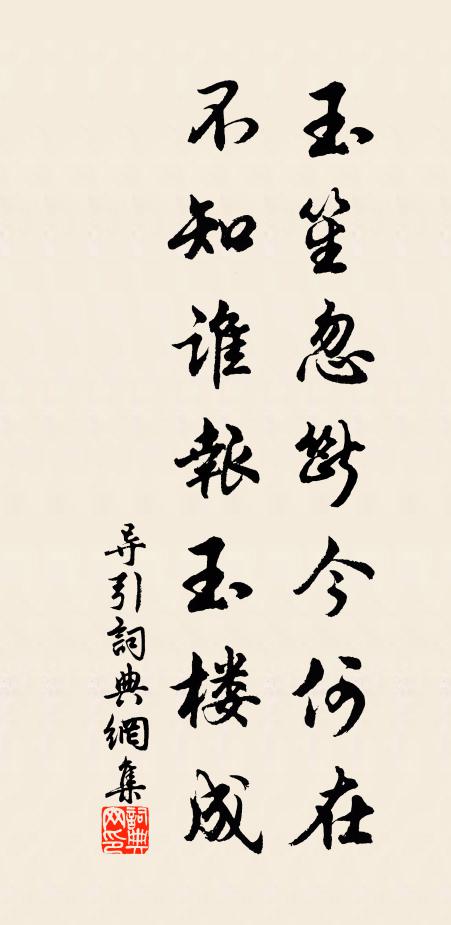 玉笙忽断今何在
不知谁報玉楼成
导引詞典網集
詞典網印